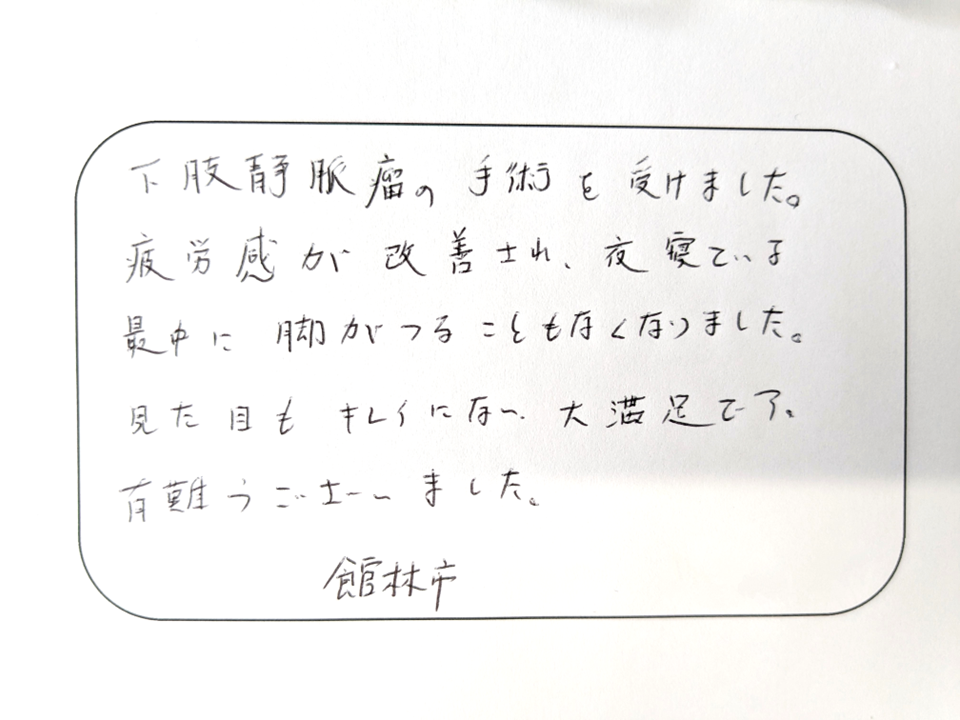 下肢静脈瘤の 手術を 受けました。
疲労感が 改善され、夜 寝ている
最中に 脚がつることもなくなりました。
見た目も キレイになり 大満足です。
有難うございました。
館林市